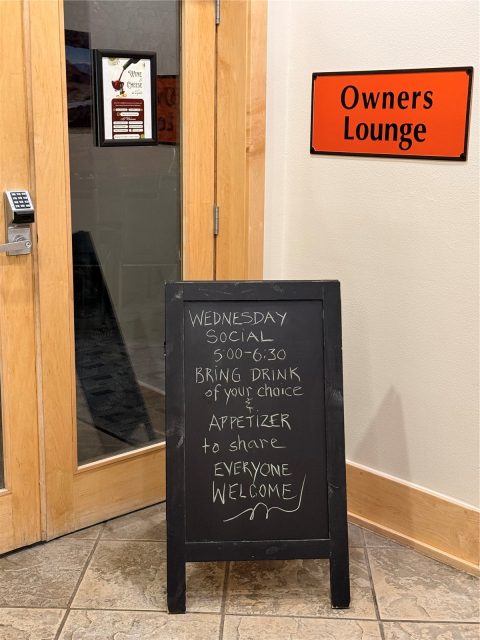 Wine
&
Cheese
Owners
Lounge
WEDNESDAY
SOCIAL
5:00-6:30
BRING DRINK
of your choice
&
APPETIZER
to share
EVERYONE
WELCOME